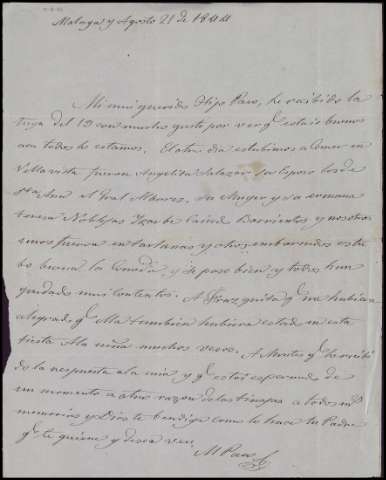 Malaga y Agosto 21 de 1844
Mi mui querido Hijo Paco, he recibido la
tuya del 19 con mucho gusto por ver qe. estais buenos
aca todos lo estamos. El otro dia estubimos a Comer en
Bellavista fueron Angelita Salazar su Esposo
Sra. Ana el Gral Alvarez, su Muger y su ermana
Barrientos y nosotros
unos fueron en tartanas y otros embarcados estu
bo buena la Comida, y se paso bien y todos han
quedado mui contentos. A Frazquita qe. me hubiera
alegrado qe. ella tambien hubiera estado en esta
fiesta a la niña muchos besos. A Montes qe. he recibi
do la respuesta a la mia y qe. estoi esperando de
un momento a otro razon de las a todos mis
memorias y Dios te bendiga como lo hace tu Padre
qe. te quiere y desea ver.
M Paco